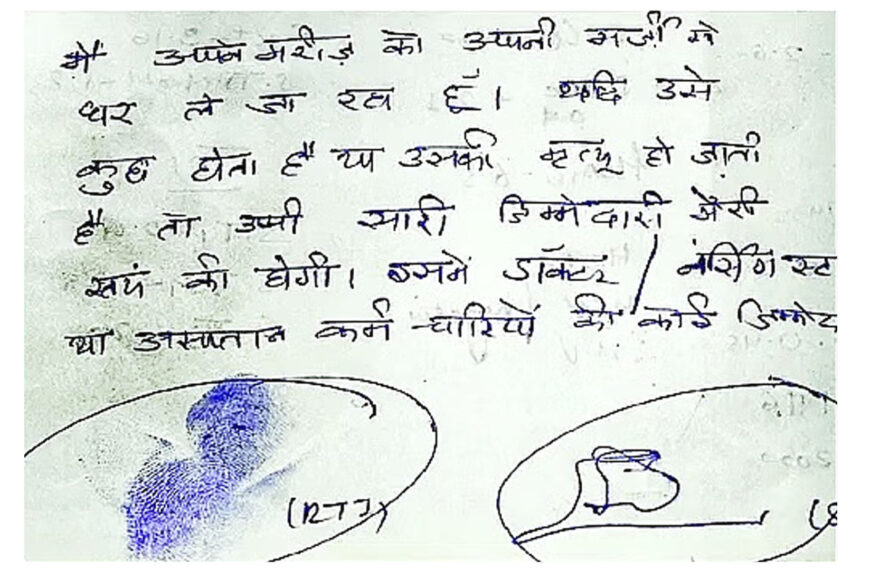 मैं अपने मरीज़ को अपनी मर्ज़ी से
घर ले जा रहा हूँ। यदि उसे
कुछ होता है या उसकी मृत्यू हो जाती
है तो उसकी सारी जिम्मेदारी मेरी
स्वयं की होगी। इसमें डॉक्टर / नर्सिंग स्ट
या अस्पताल कर्मचारियों की कोई जिम्मेद
(RTI)